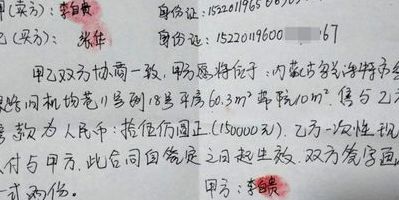 甲(卖方):李自贵 身份证:1522011965
乙(买方): 张华 身份证:15220119600 167
甲乙双方协商一致,甲方愿将位于:内蒙古
11号到18号平房60.3m² 带院10m²,售与乙方
款为人民币:拾伍仟圆正(150000元).乙方一次性现
付与甲方,此合同自签定之日起生效.双方签字画
一式两份。
甲方:李自贵